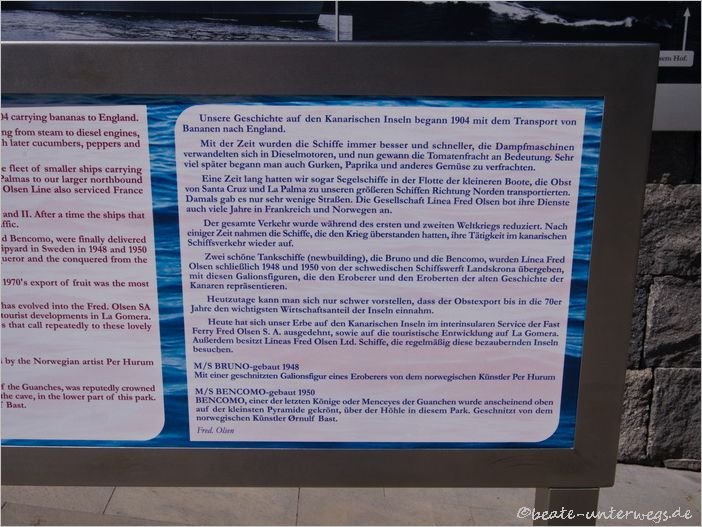 sem Hof.
04 carrying bananas to England.
ng from steam to diesel engines,
h later cucumbers, peppers and
e fleet of smaller ships carrying
Palmas to our larger northbound
Olsen Line also serviced France
and II. After a time the ships that
d Bencomo, were finally delivered
ipyard in Sweden in 1948 and 1950
ueror and the conquered from the
1970's export of fruit was the most
has evolved into the Fred. Olsen SA
tourist developments in La Gomera.
s that call repeatedly to these lovely
s by the Norwegian artist Per Hurum
f the Guanches, was reputedly crowned
the cave, in the lower part of this park.
f Bast.
Unsere Geschichte auf den Kanarischen Inseln begann 1904 mit dem Transport von
Bananen nach England.
Mit der Zeit wurden die Schiffe immer besser und schneller, die Dampfmaschinen
verwandelten sich in Dieselmotoren, und nun gewann die Tomatenfracht an Bedeutung. Sehr
viel später begann man auch Gurken, Paprika und anderes Gemüse zu verfrachten.
Eine Zeit lang hatten wir sogar Segelschiffe in der Flotte der kleineren Boote, die Obst
von Santa Cruz und La Palma zu unseren größeren Schiffen Richtung Norden transportierten.
Damals gab es nur sehr wenige Straßen. Die Gesellschaft Linea Fred Olsen bot ihre Dienste
auch viele Jahre in Frankreich und Norwegen an.
Der gesamte Verkehr wurde während des ersten und zweiten Weltkriegs reduziert. Nach
einiger Zeit nahmen die Schiffe, die den Krieg überstanden hatten, ihre Tätigkeit im kanarischen
Schiffsverkehr wieder auf.
Zwei schöne Tankschiffe (newbuilding), die Bruno und die Bencomo, wurden Linea Fred
Olsen schließlich 1948 und 1950 von der schwedischen Schiffswerft Landskrona übergeben,
mit diesen Galionsfiguren, die den Eroberer und den Eroberten der alten Geschichte der
Kanaren repräsentieren.
Heutzutage kann man sich nur schwer vorstellen, dass der Obstexport bis in die 70er
Jahre den wichtigsten Wirtschaftsanteil der Inseln einnahm.
Heute hat sich unser Erbe auf den Kanarischen Inseln im interinsularen Service der Fast
Ferry Fred Olsen S. A. ausgedehnt, sowie auf die touristische Entwicklung auf La Gomera.
Außerdem besitzt Lineas Fred Olsen Ltd. Schiffe, die regelmäßig diese bezaubernden Inseln
besuchen.
M/S BRUNO-gebaut 1948
Mit einer geschnitzten Galionsfigur eines Eroberers von dem norwegischen Künstler Per Hurum
M/S BENCOMO-gebaut 1950
BENCOMO, einer der letzten Könige oder Menceyes der Guanchen wurde anscheinend oben
auf der kleinsten Pyramide gekrönt, über der Höhle in diesem Park. Geschnitzt von dem
norwegischen Künstler Ørnulf Bast.
Fred. Olsen
©beate-unterwegs.de